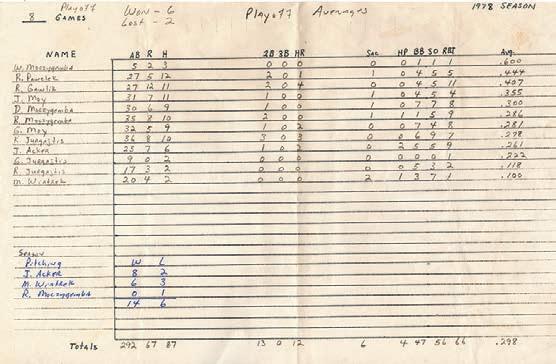 8 Playoff GAMES Won - 6 Lost - 2 Playoff Averages 1978 SEASON
NAME AB R H 2B 3B HR Sac HP BB SO RBI Avg.
W. Moczygemba 5 2 3 0 0 0 0 0 1 1 1 .600
R. Pawelek 27 5 12 2 0 1 1 0 4 5 5 .444
R. Gawlik 27 12 11 2 0 4 0 0 4 5 11 .407
J. Moy 31 7 11 1 0 0 1 0 4 5 4 .355
D. Moczygemba 30 6 9 1 0 0 1 0 7 7 8 .300
R. Moczygemba 35 8 10 2 0 0 1 1 1 5 9 .286
G. Moy 32 5 9 1 0 2 0 0 7 4 8 .281
K. Jurgastis 36 8 10 3 0 3 0 0 6 9 7 .278
J. Acker 23 7 6 1 0 2 0 2 5 5 9 .261
G. Jurgastis 9 0 2 0 0 0 0 0 0 0 1 .222
R. Jurgastis 17 3 2 0 0 0 0 0 5 3 2 .118
M. Wiatrek 20 4 2 0 0 0 2 1 3 7 1 .100
Season
Pitching W L
J. Acker 8 2
M. Wiatrek 6 3
R. Moczygemba 0 1
14 6
Totals 292 67 87 13 0 12 6 4 47 56 66 .298